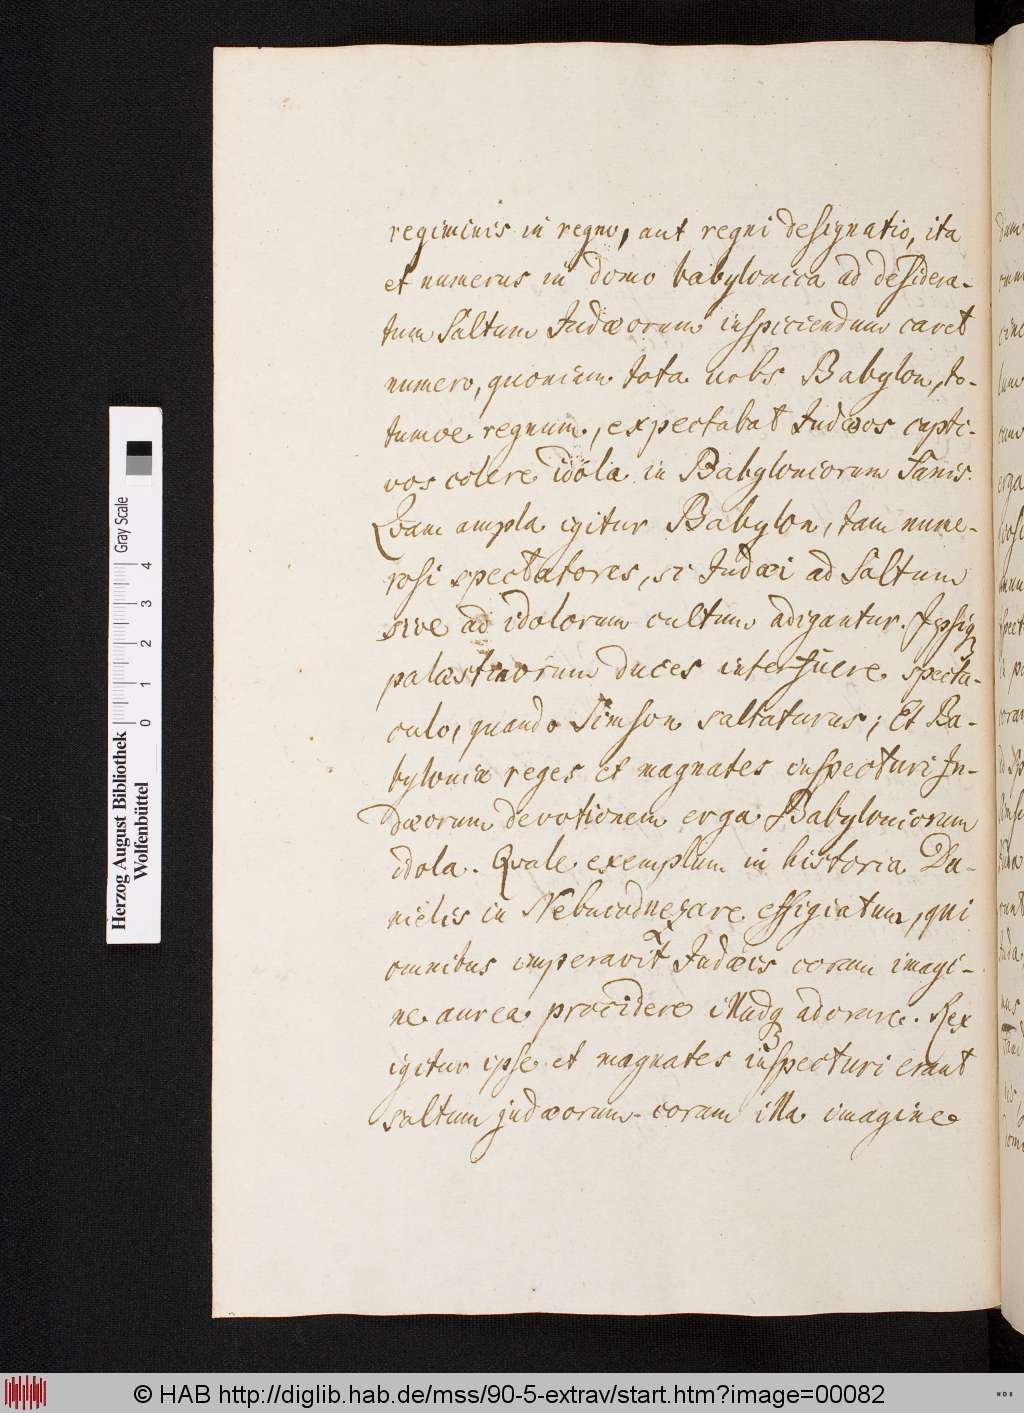 regiminis in regno, aut regni designatio, ita
et numerus in domo babylonica ad desidera-
tum saltum Judæorum inspiciendum caret
numero, quoniam tota urbs Babylon, to-
tumqe regnum, expectabat Judæos capti-
vos colere idola in Babyloniorum fanis.
Qvam ampla igitur Babylon, tam nume-
rosi spectatores, si Judæi ad saltum
sive ad idolorum cultum adigantur. Ipsiq
palæstinorum duces interfuere specta-
culo, quando Simson saltaturus; Et Ba-
byloniæ reges et magnates inspecturi Ju-
dæorum devotionem erga Babyloniorum
idola. Qvale exemplum in historia Da-
nielis in Nebucadnezare effigiatum, qui
omnibus imperavit Judæis coram imagi-
ne aurea procidere illudq adorare. Rex
igitur ipse et magnates inspecturi erant
saltum judæorum coram illa imagine
Herzog August Bibliothek
Wolfenbüttel
Gray Scale
0 1 2 3 4
© HAB http://diglib.hab.de/mss/90-5-extrav/start.htm?image=00082